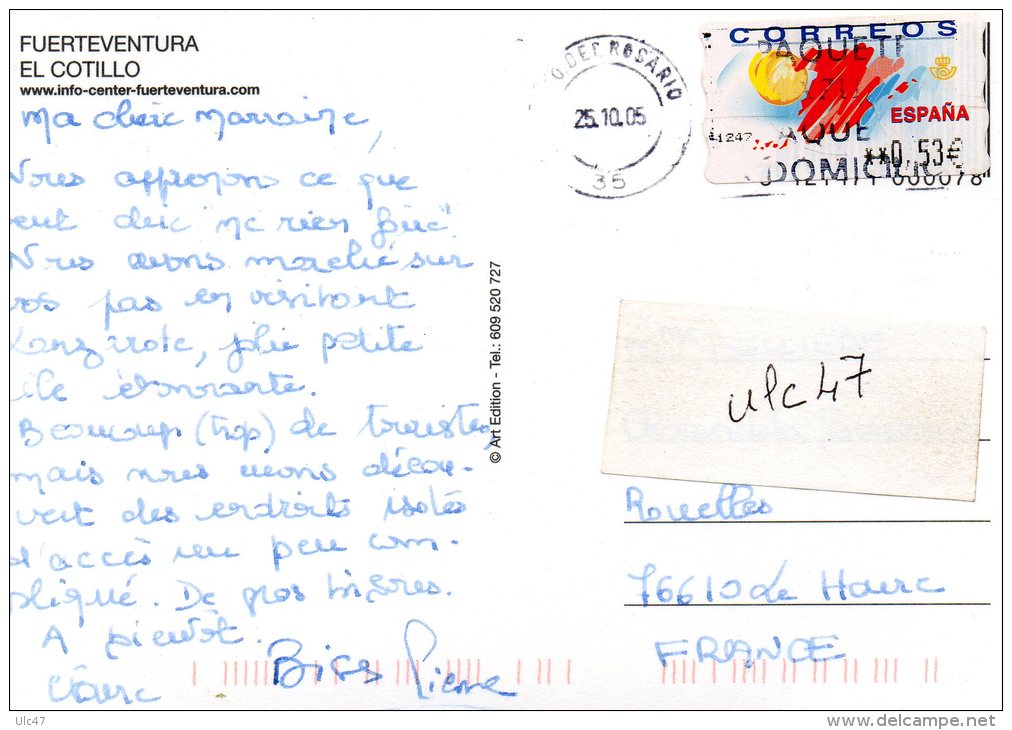 FUERTEVENTURA
EL COTILLO
www.info-center-fuerteventura.com
Ma chère Marraine,
Nous appliquons ce que
veut dire "ne rien faire"
Nous avons marché sur
vos pas en visitant
Lanzarote, jolie petite
île étonnante.
Beaucoup (trop) de touristes,
mais nous avons décou-
vert des endroits isolés
d'accès un peu com-
pliqué. De gros bisous.
A bientôt.
Bises Pierre
Claire
© Art Edition - Tel.: 609 520 727
O DEL ROSARIO
25.10.05
35
CORREOS
PAQUETE
ESPAÑA
1247
**0,53€
DOMICILIO
ulc47
Rouelles
76610 Le Havre
FRANCE
Ulc47
delcampe.net